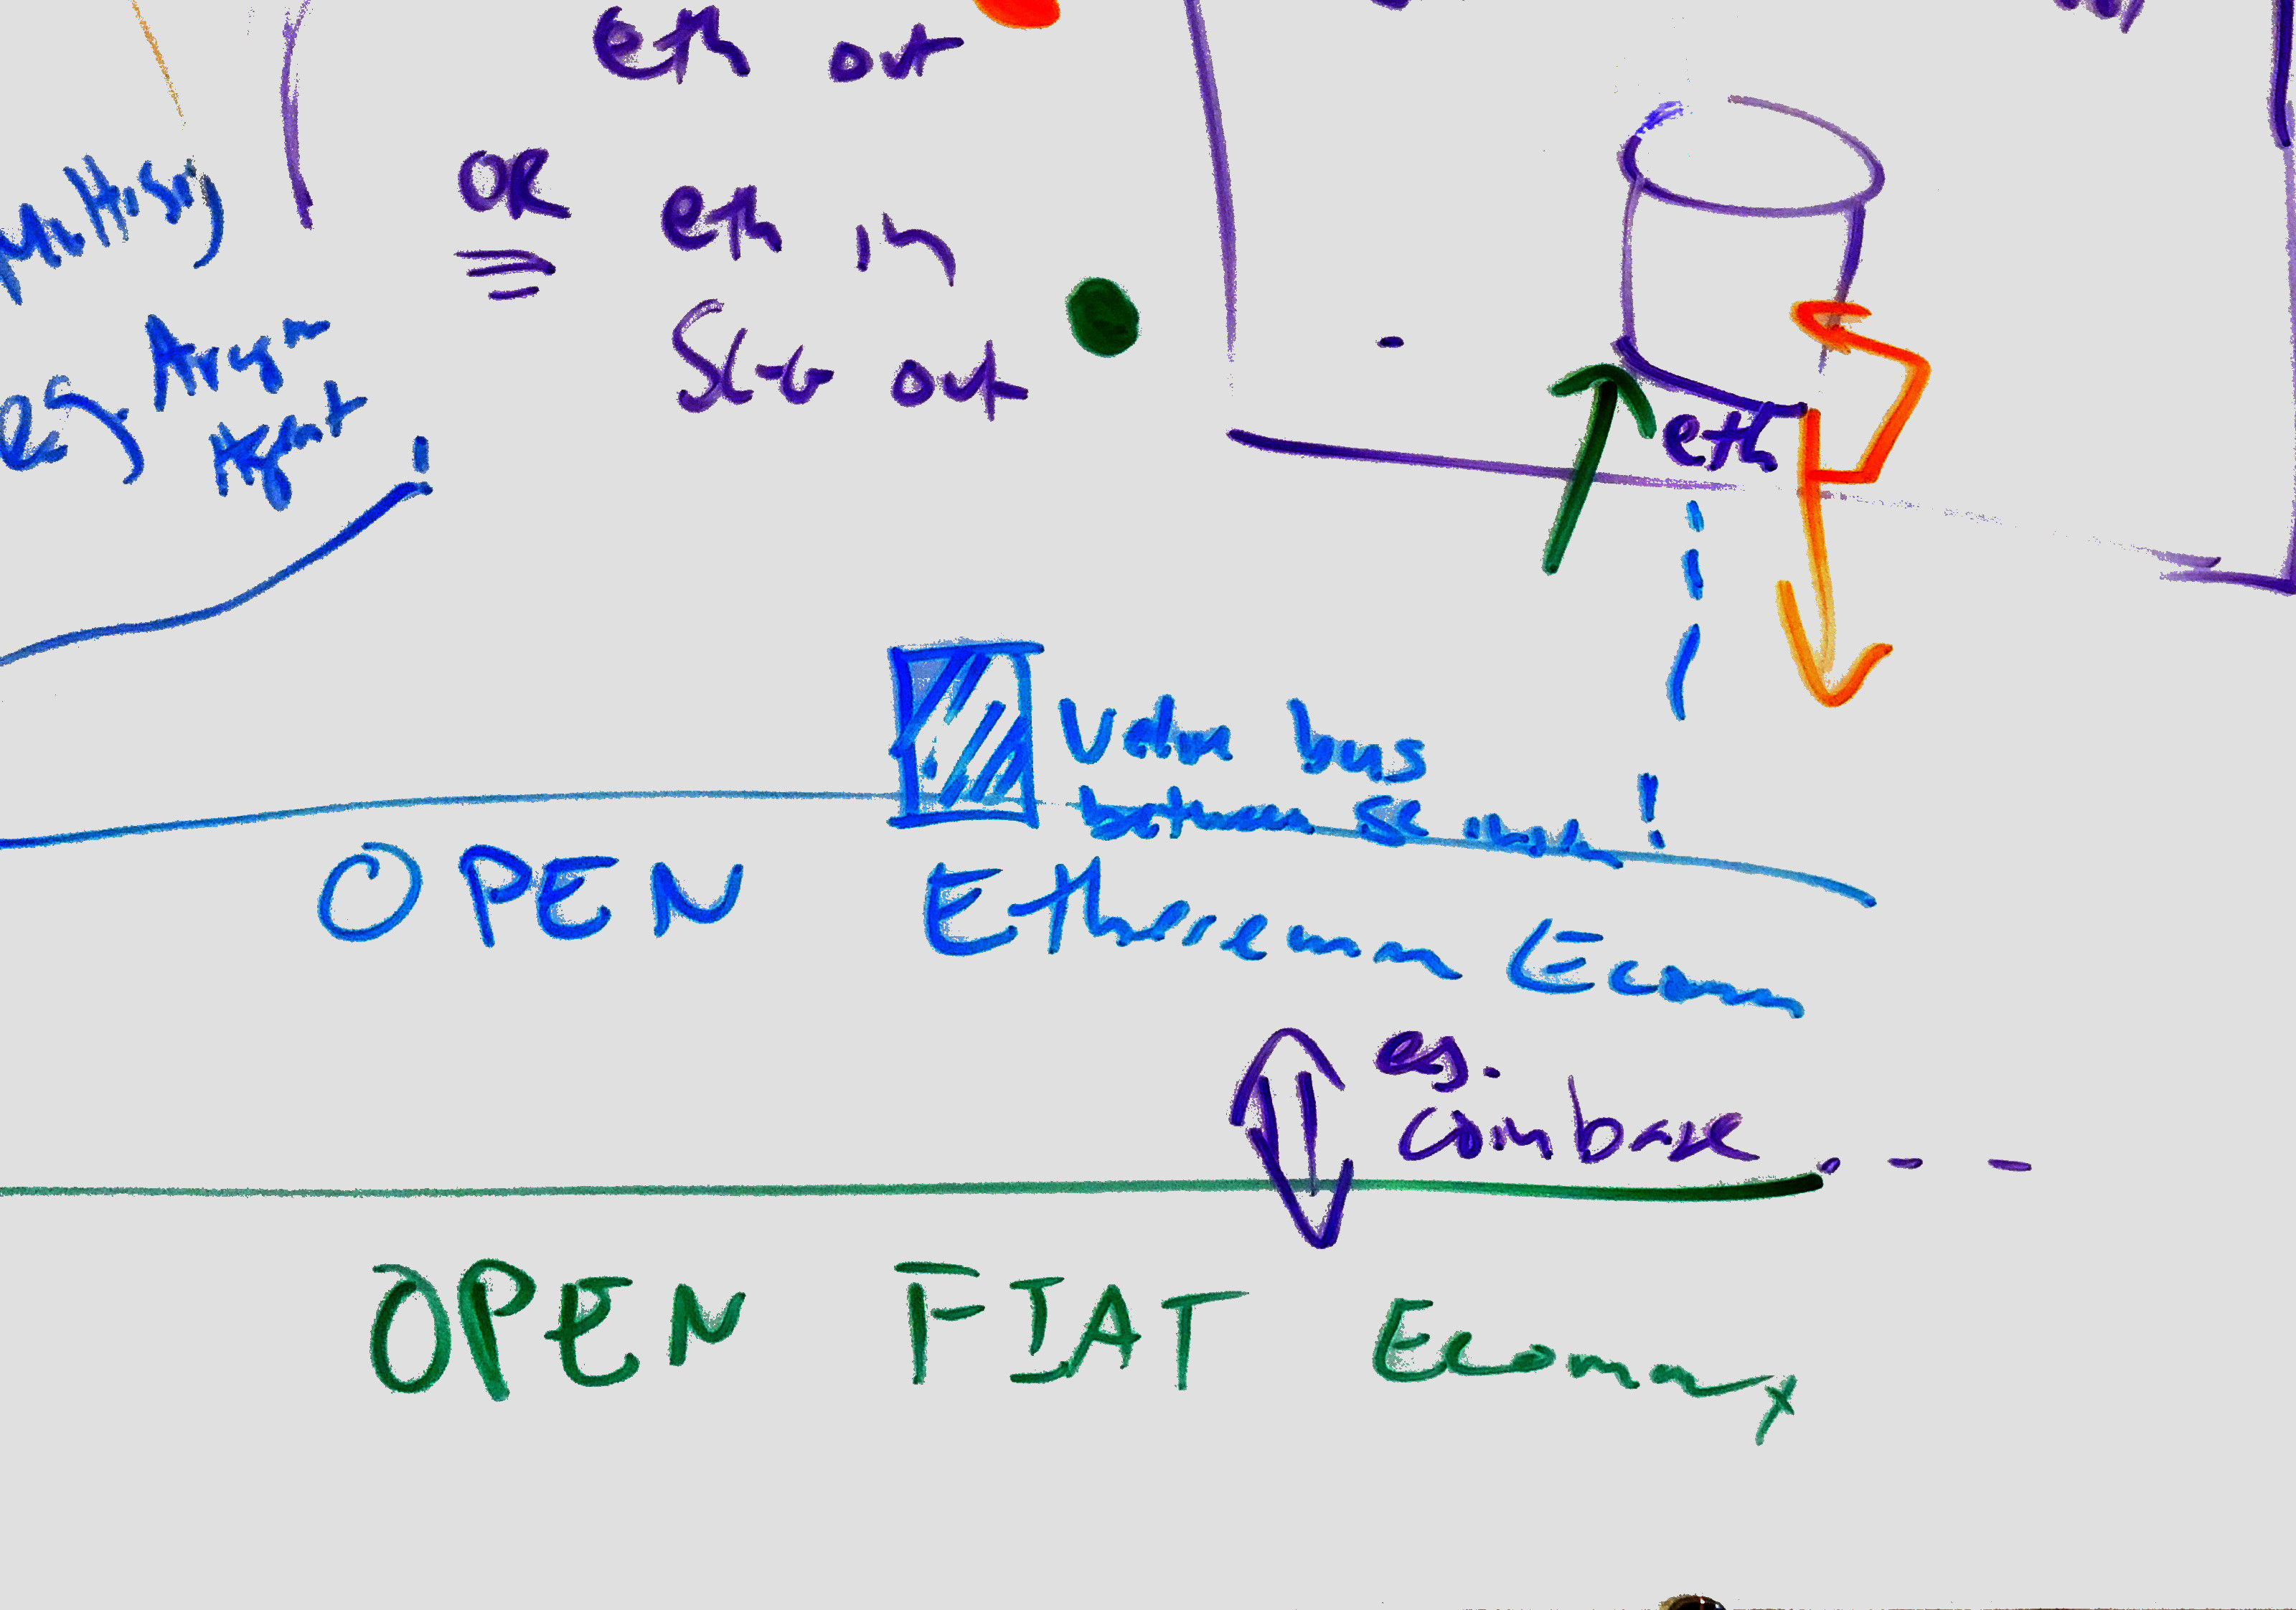 eth out
OR eth in
out
Multisig
eg. Aragon
Agent
eth
Value bus
between SC
OPEN Ethereum Econ
eg.
coinbase
OPEN FIAT Economy